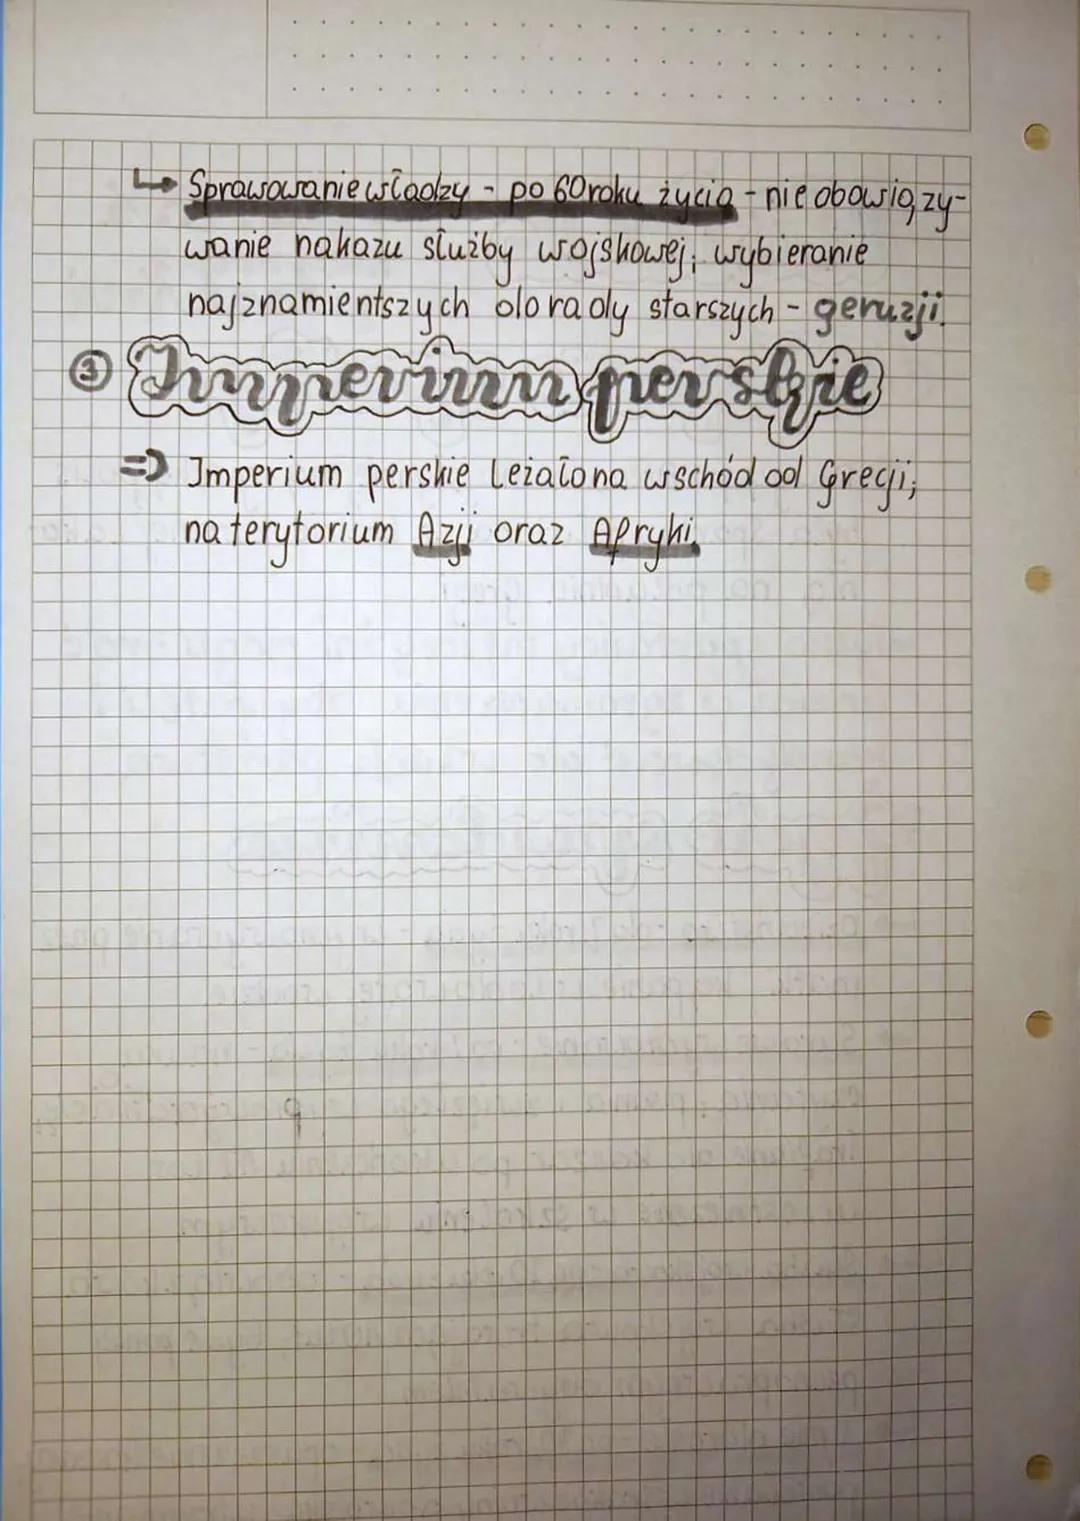 ↳ Sprawowanie władzy - po 60 roku życia - nie obowiązy-
wanie nakazu służby wojskowej; wybieranie
najznamientszych do rady starszych - geruzji.
③ Imperium perskie
⇒ Imperium perskie leżało na wschód od Grecji;
na terytorium Azji oraz Afryki.